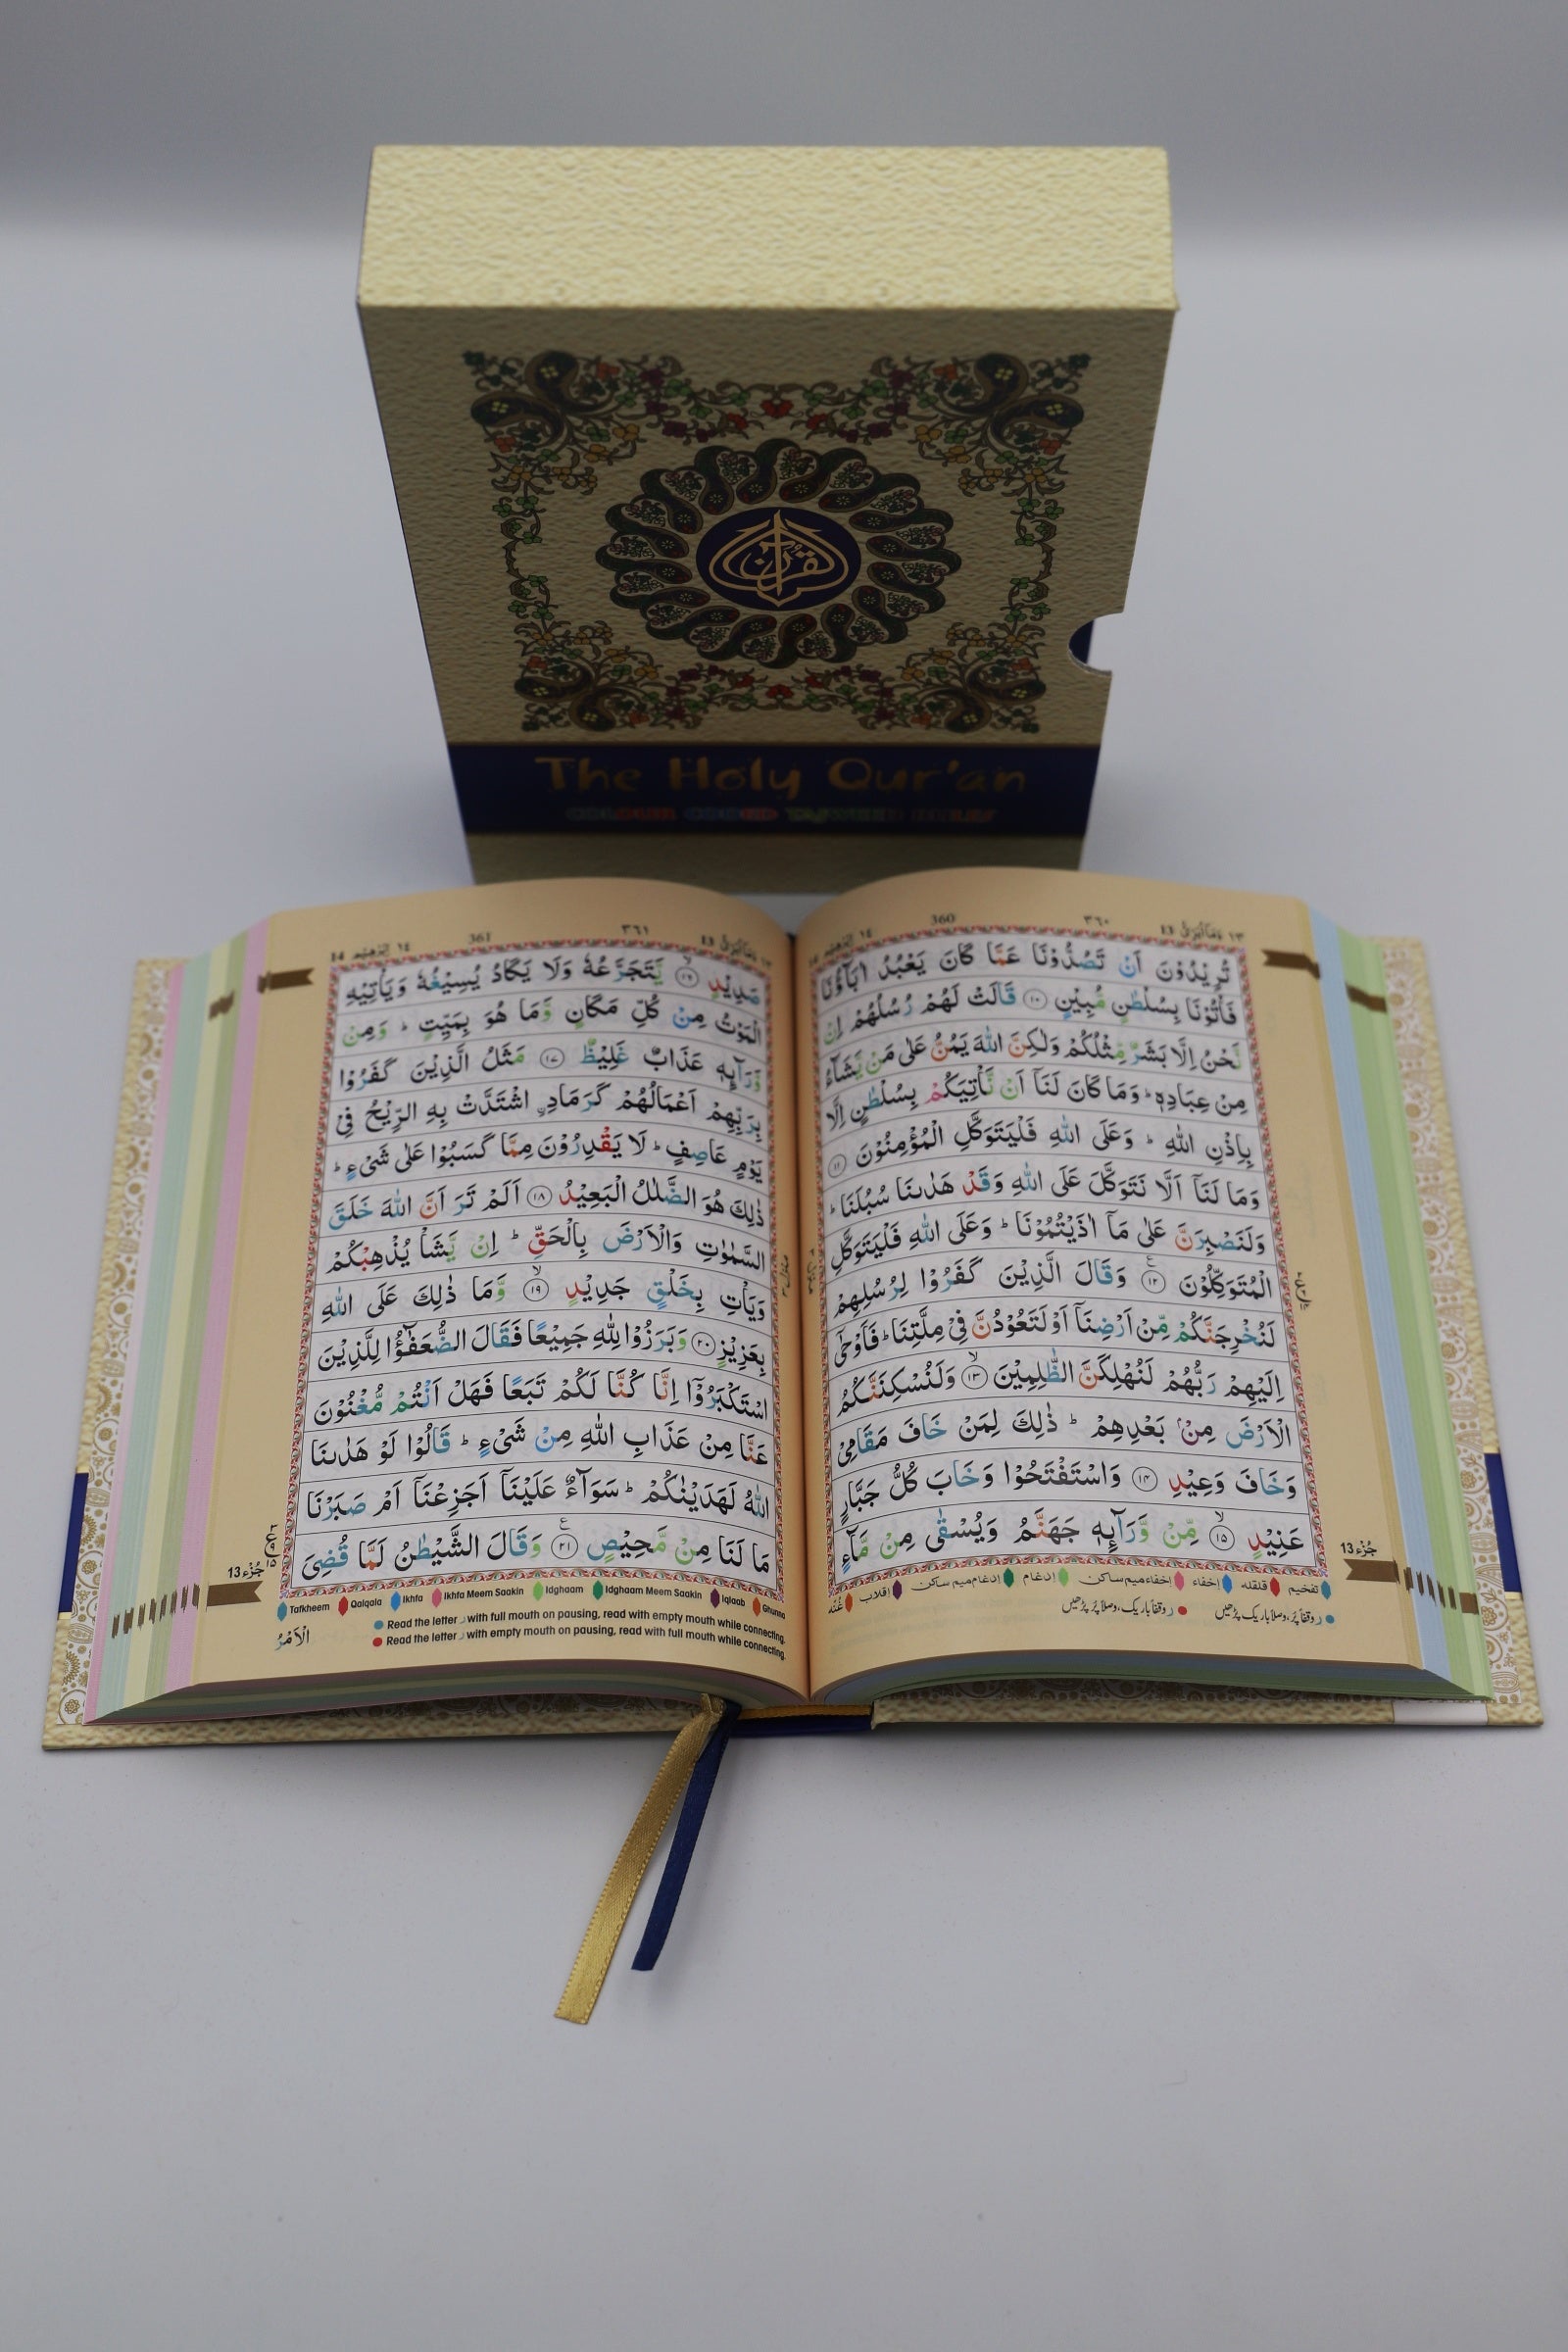 القرآن
The Holy Qur'an
COLOUR CODED TAJWEED RULES
١٣ وَمَآ اُبَرِّئُ 13
٣٦٠
360
١٤ اِبْرٰهِيْم 14
تُرِيْدُوْنَ اَنْ تَصُدُّوْنَا عَمَّا كَانَ يَعْبُدُ اٰبَآؤُنَا
فَاْتُوْنَا بِسُلْطٰنٍ مُّبِيْنٍ ۝١٠ قَالَتْ لَهُمْ رُسُلُهُمْ اِنْ
نَّحْنُ اِلَّا بَشَرٌ مِّثْلُكُمْ وَلٰكِنَّ اللّٰهَ يَمُنُّ عَلٰى مَنْ يَّشَآءُ
مِنْ عِبَادِهٖ ؕ وَمَا كَانَ لَنَآ اَنْ نَّاْتِيَكُمْ بِسُلْطٰنٍ اِلَّا
بِاِذْنِ اللّٰهِ ؕ وَعَلَى اللّٰهِ فَلْيَتَوَكَّلِ الْمُؤْمِنُوْنَ ۝١١
وَمَا لَنَآ اَلَّا نَتَوَكَّلَ عَلَى اللّٰهِ وَقَدْ هَدٰىنَا سُبُلَنَا ؕ
وَلَنَصْبِرَنَّ عَلٰى مَآ اٰذَيْتُمُوْنَا ؕ وَعَلَى اللّٰهِ فَلْيَتَوَكَّلِ
الْمُتَوَكِّلُوْنَ ۝١٢ وَقَالَ الَّذِيْنَ كَفَرُوْا لِرُسُلِهِمْ
لَنُخْرِجَنَّكُمْ مِّنْ اَرْضِنَآ اَوْ لَتَعُوْدُنَّ فِيْ مِلَّتِنَا ؕ فَاَوْحٰٓى
اِلَيْهِمْ رَبُّهُمْ لَنُهْلِكَنَّ الظّٰلِمِيْنَ ۝١٣ وَلَنُسْكِنَنَّكُمُ
الْاَرْضَ مِنْۢ بَعْدِهِمْ ؕ ذٰلِكَ لِمَنْ خَافَ مَقَامِيْ
وَخَافَ وَعِيْدِ ۝١٤ وَاسْتَفْتَحُوْا وَخَابَ كُلُّ جَبَّارٍ
عَنِيْدٍ ۝١٥ مِّنْ وَّرَآئِهٖ جَهَنَّمُ وَيُسْقٰى مِنْ مَّآءٍ
جُزْء 13
تفخیم قلقلہ إخفاء إخفاء میم ساکن إدغام إدغام میم ساکن إقلاب غُنّہ
ر وقفاً پُر، وصلاً باریک پڑھیں ر وقفاً باریک، وصلاً پُر پڑھیں
١٣ وَمَآ اُبَرِّئُ 13
٣٦١
361
١٤ اِبْرٰهِيْم 14
صَدِيْدٍ ۝١٦ يَّتَجَرَّعُهٗ وَلَا يَكَادُ يُسِيْغُهٗ وَيَاْتِيْهِ
الْمَوْتُ مِنْ كُلِّ مَكَانٍ وَّمَا هُوَ بِمَيِّتٍ ؕ وَمِنْ
وَّرَآئِهٖ عَذَابٌ غَلِيْظٌ ۝١٧ مَثَلُ الَّذِيْنَ كَفَرُوْا
بِرَبِّهِمْ اَعْمَالُهُمْ كَرَمَادِ ۨاشْتَدَّتْ بِهِ الرِّيْحُ فِيْ
يَوْمٍ عَاصِفٍ ؕ لَا يَقْدِرُوْنَ مِمَّا كَسَبُوْا عَلٰى شَيْءٍ ؕ
ذٰلِكَ هُوَ الضَّلٰلُ الْبَعِيْدُ ۝١٨ اَلَمْ تَرَ اَنَّ اللّٰهَ خَلَقَ
السَّمٰوٰتِ وَالْاَرْضَ بِالْحَقِّ ؕ اِنْ يَّشَاْ يُذْهِبْكُمْ
وَيَاْتِ بِخَلْقٍ جَدِيْدٍ ۝١٩ وَّمَا ذٰلِكَ عَلَى اللّٰهِ
بِعَزِيْزٍ ۝٢٠ وَبَرَزُوْا لِلّٰهِ جَمِيْعًا فَقَالَ الضُّعَفٰٓؤُا لِلَّذِيْنَ
اسْتَكْبَرُوْٓا اِنَّا كُنَّا لَكُمْ تَبَعًا فَهَلْ اَنْتُمْ مُّغْنُوْنَ
عَنَّا مِنْ عَذَابِ اللّٰهِ مِنْ شَيْءٍ ؕ قَالُوْا لَوْ هَدٰىنَا
اللّٰهُ لَهَدَيْنٰكُمْ ؕ سَوَآءٌ عَلَيْنَآ اَجَزِعْنَآ اَمْ صَبَرْنَا
مَا لَنَا مِنْ مَّحِيْصٍ ۝٢١ وَقَالَ الشَّيْطٰنُ لَمَّا قُضِيَ
جُزْء 13
Tafkheem Qalqala Ikhfa Ikhfa Meem Saakin Idghaam Idghaam Meem Saakin Iqlaab Ghunna
Read the letter ر with full mouth on pausing, read with empty mouth while connecting.
Read the letter ر with empty mouth on pausing, read with full mouth while connecting.
الْاَمْرُ